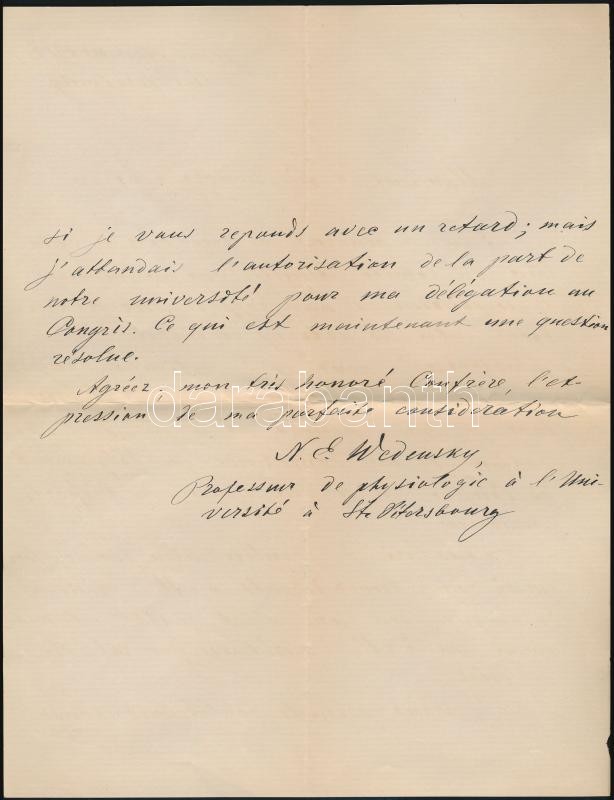 si je vous reponds avec un retard; mais
j'attandais l'autorisation de la part de
notre université pour ma délégation au
Congrès. Ce qui est maintenant une question
résolue.
Agréez, mon très honoré Confrère, l'ex-
pression de ma parfaite consideration
darabanth
N. E. Wedensky,
Professeur de physiologie à l'Uni-
versité à St. Pétersbourg